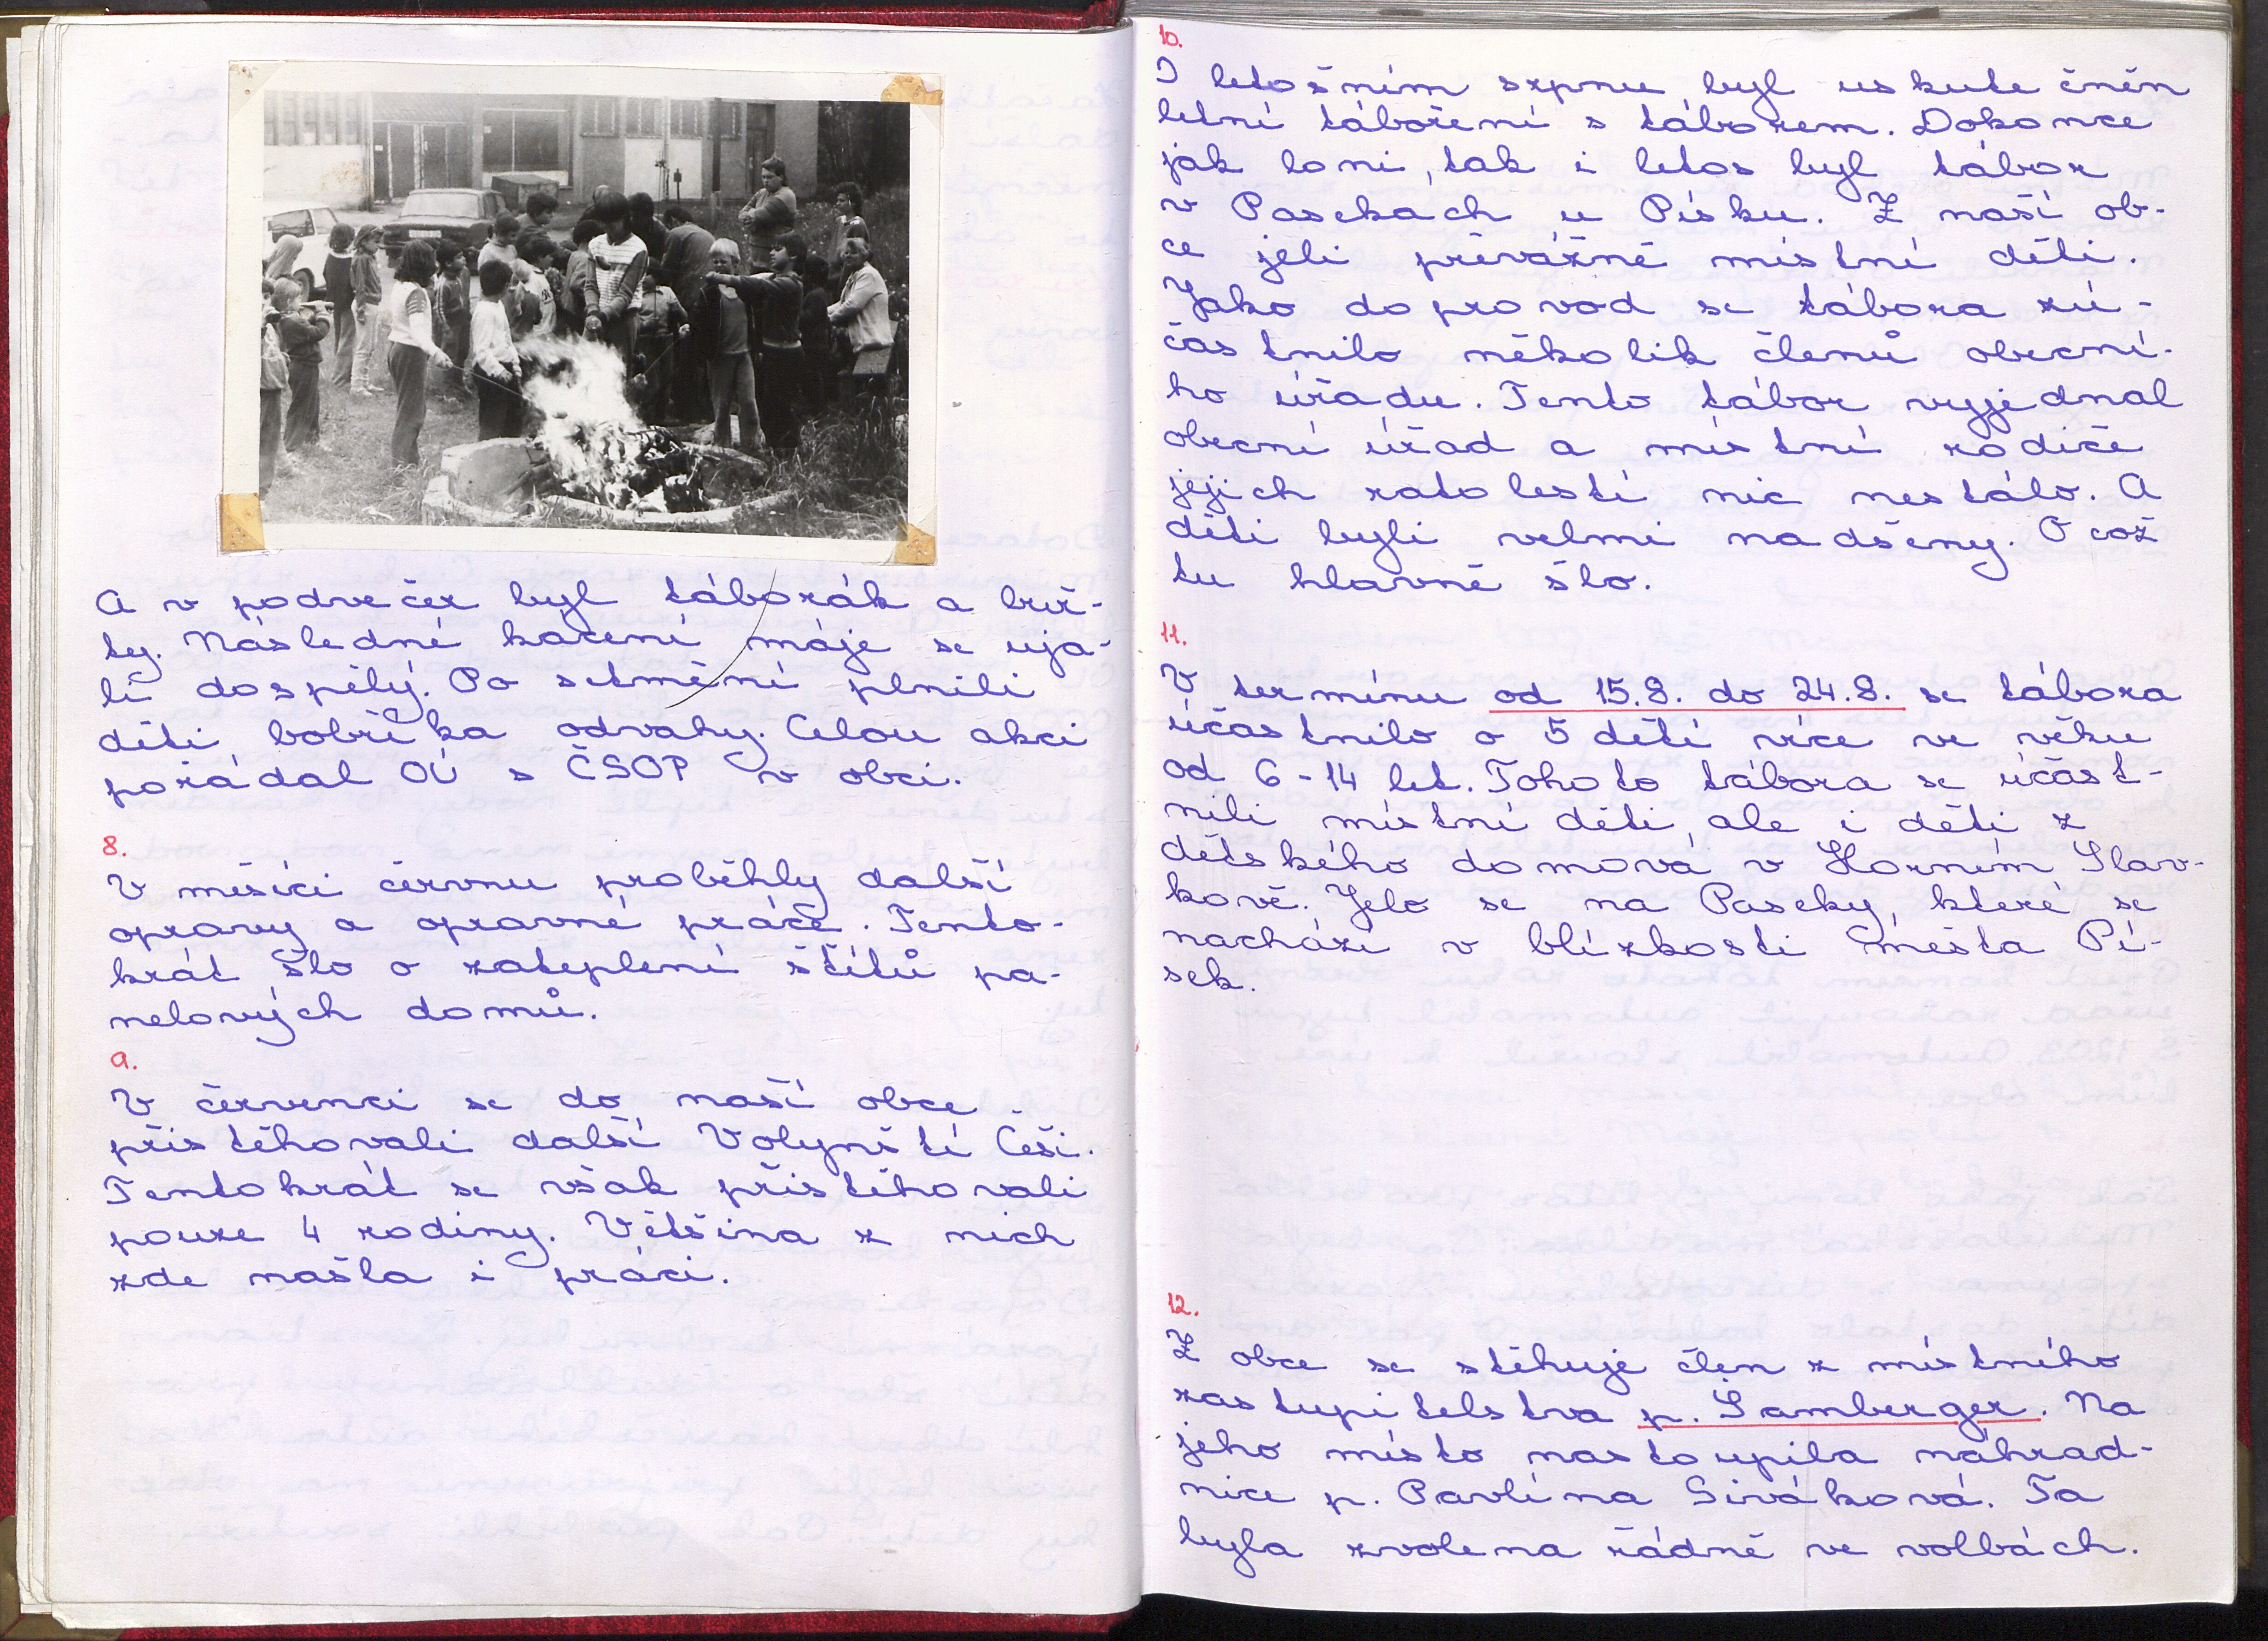 A v podvečer byl táborák a buř-
ty. Následné kácení máje se uja-
li dospělý. Po setmění plnili
děti bobříka odvahy. Celou akci
pořádal OÚ s ČSOP v obci.
8.
V měsíci červnu proběhly další
opravy a opravné práce. Tento-
krát šlo o zateplení štítů pa-
nelových domů.
9.
V červenci se do naší obce
přistěhovali další Volynští Češi.
Tentokrát se však přistěhovali
pouze 4 rodiny. Většina z nich
zde našla i práci.
10.
I letošním srpnu byl uskutečněn
letní táboření s táborem. Dokonce
jak loni, tak i letos byl tábor
v Pasekách u Písku. Z naší ob-
ce jeli převážně místní děti.
Jako doprovod se tábora zú-
častnilo několik členů obecní-
ho úřadu. Tento tábor vyjednal
obecní úřad a místní rodiče
jejich ratolestí nic nestálo. A
děti byli velmi nadšeny. O což
tu hlavně šlo.
11.
V termínu od 15.8. do 24.8. se tábora
účastnilo o 5 dětí více ve věku
od 6-14 let. Tohoto tábora se účast-
nili místní děti, ale i děti z
dětského domova v Horním Slav-
kově. Jelo se na Paseky, které se
nachází v blízkosti města Pí-
sek.
12.
Z obce se stěhuje člen z místního
zastupitelstva p. Samberger. Na
jeho místo nastoupila náhrad-
nice p. Pavlína Siváková. Ta
byla zvolena řádně ve volbách.